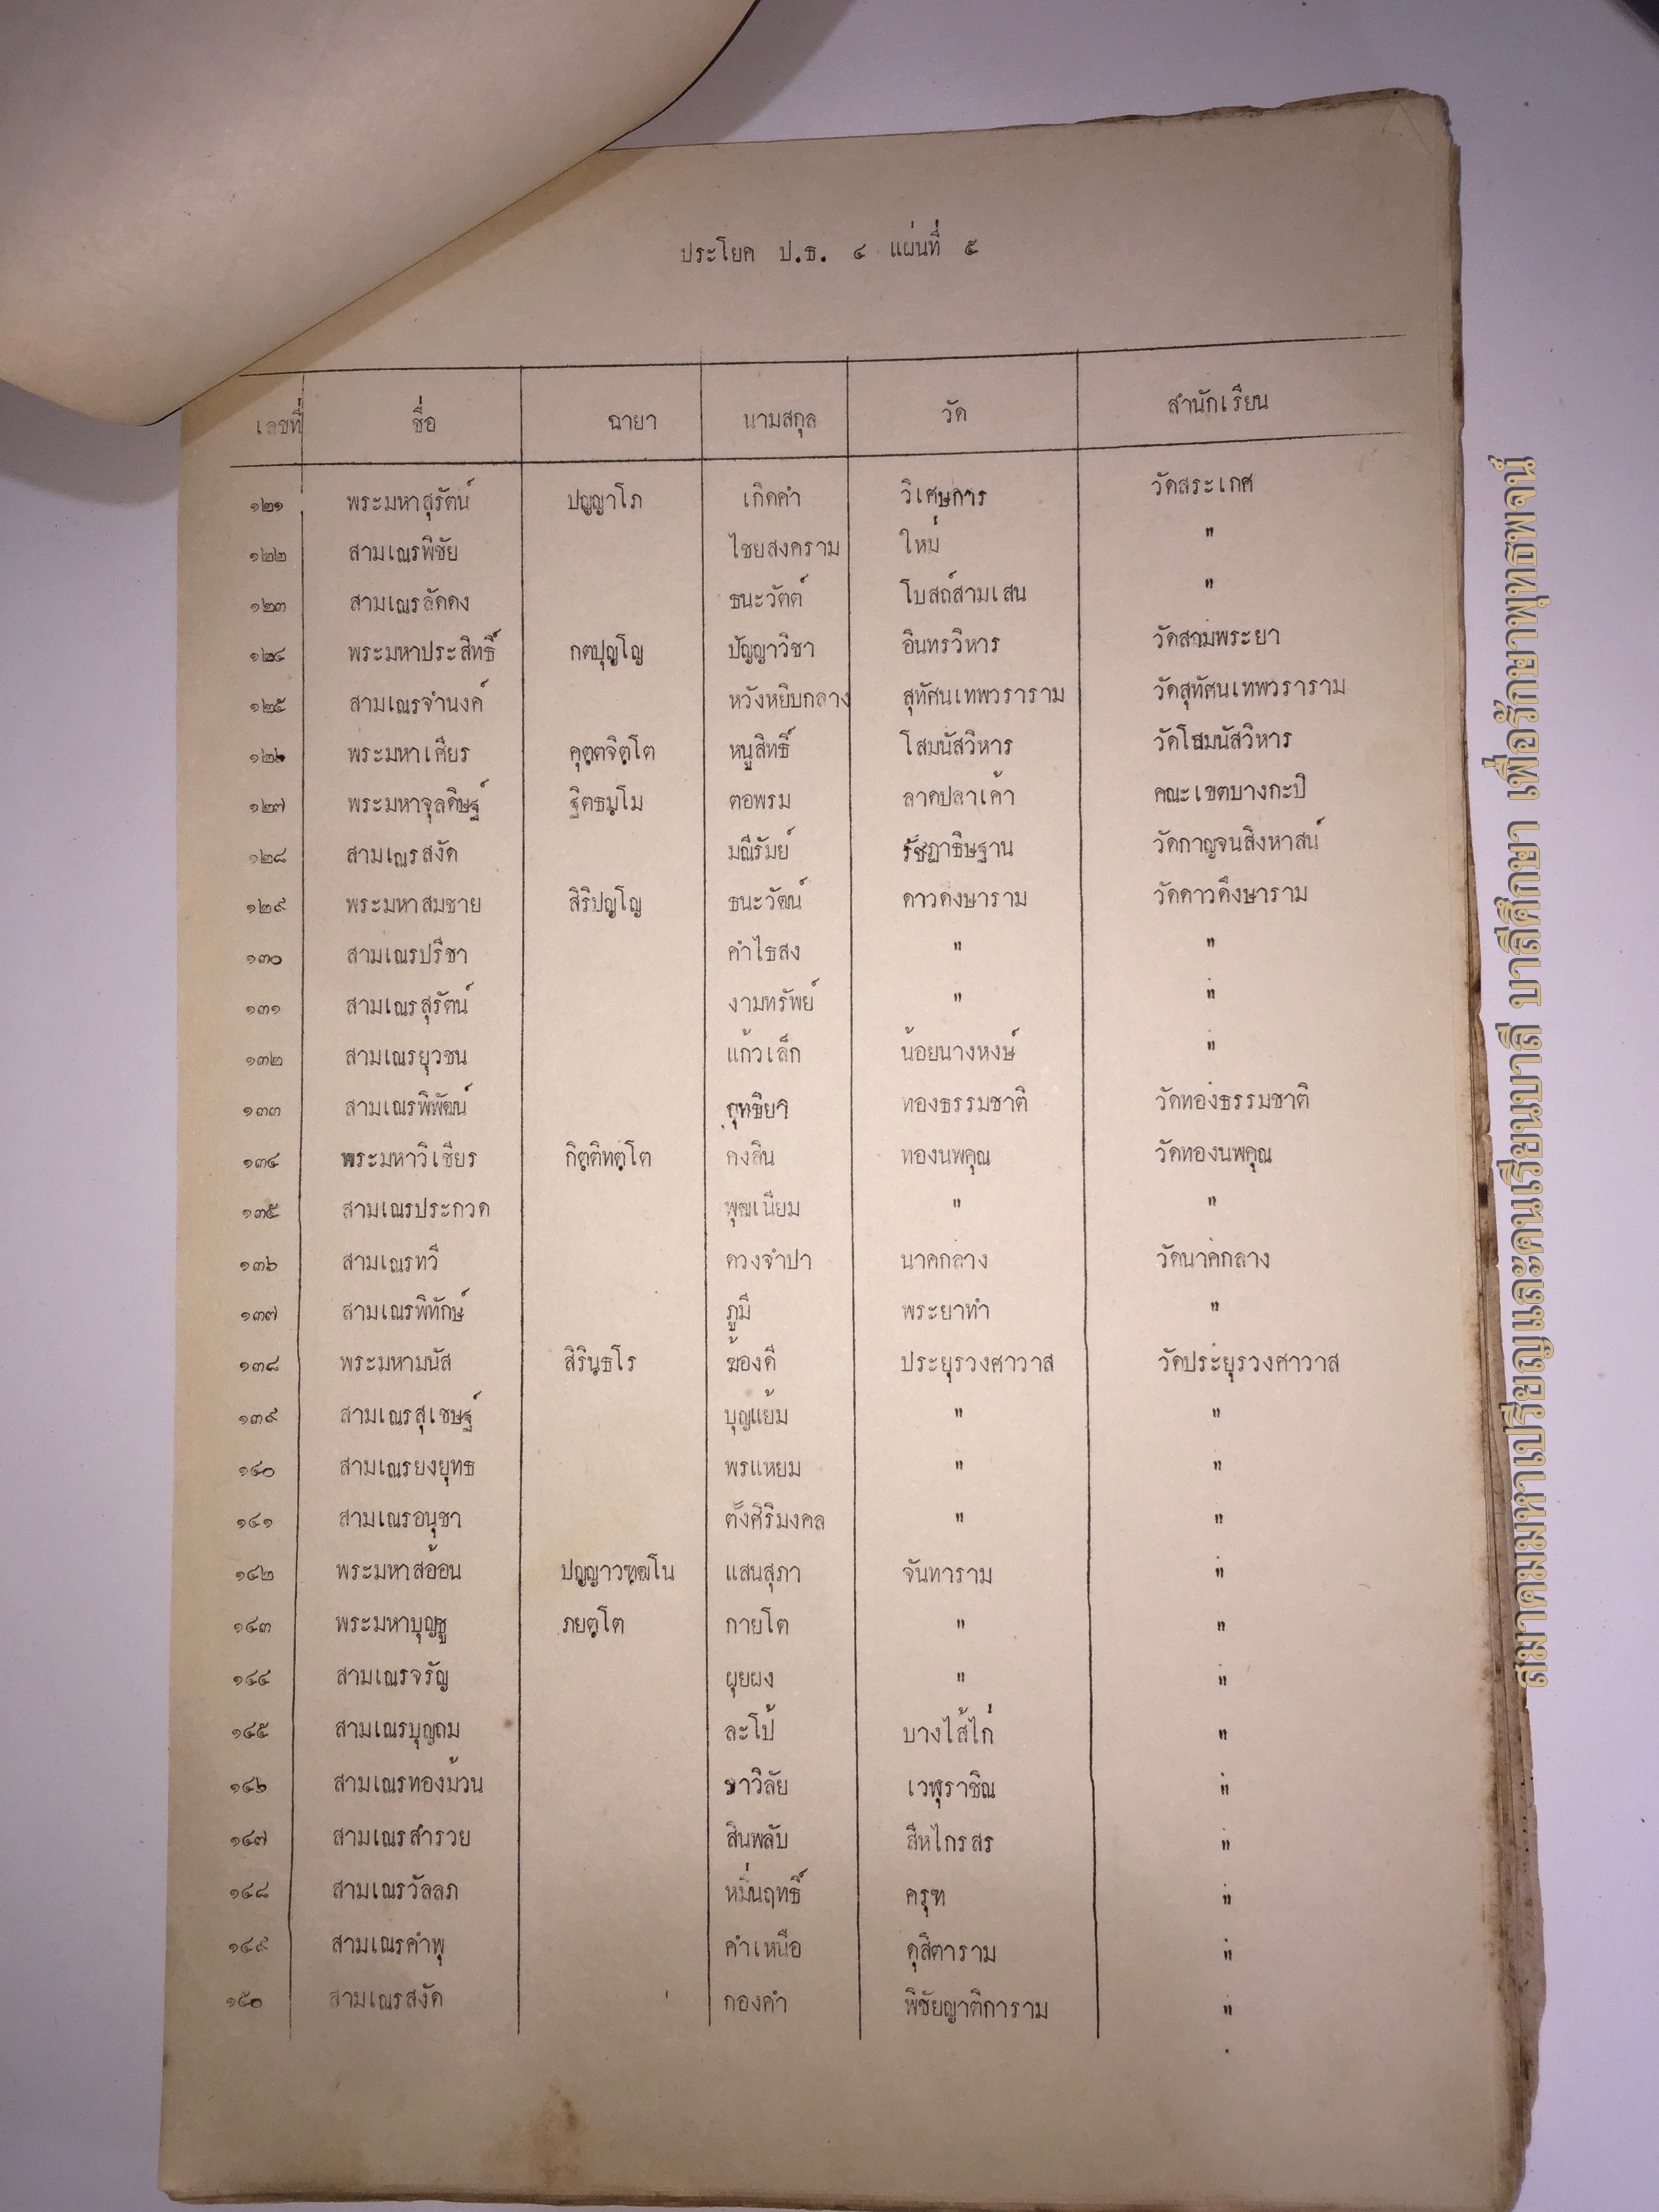 ประโยค ป.ธ. ๔ แผ่นที่ ๕
เลขที่ ชื่อ ฉายา นามสกุล วัด สำนักเรียน
๑๒๑ พระมหาสุรัตน์ ปญฺญาโภ เกิดคำ วิเศษการ วัดสระเกศ
๑๒๒ สามเณรพิชัย ไชยสงคราม ใหม่ "
๑๒๓ สามเณรลัดดง ธนะวัตต์ โบสถ์สามเสน "
๑๒๔ พระมหาประสิทธิ์ กตปุญฺโญ ปัญญาวิชา อินทรวิหาร วัดสามพระยา
๑๒๕ สามเณรจำนงค์ หวังหยิบกลาง สุทัศนเทพวราราม วัดสุทัศนเทพวราราม
๑๒๖ พระมหาเศียร คุตฺตจิตฺโต หนูสิทธิ์ โสมนัสวิหาร วัดโสมนัสวิหาร
๑๒๗ พระมหาจุลดิษฐ์ ฐิตธมฺโม ตอพรม ลาดปลาเค้า คณะเขตบางกะปิ
๑๒๘ สามเณรสงัด มณีรัมย์ รัชฎาธิษฐาน วัดกาญจนสิงหาสน์
๑๒๙ พระมหาสมชาย สิริปญฺโญ ธนะวัฒน์ ดาวดึงษาราม วัดดาวดึงษาราม
๑๓๐ สามเณรปรีชา คำไธสง " "
๑๓๑ สามเณรสุรัตน์ งามทรัพย์ " "
๑๓๒ สามเณรยุวชน แก้วเล็ก น้อยนางหงษ์ "
๑๓๓ สามเณรพิพัฒน์ ทองธรรมชาติ วัดทองธรรมชาติ
๑๓๔ พระมหาวิเชียร กิตฺติทตฺโต คงสิน ทองนพคุณ วัดทองนพคุณ
๑๓๕ สามเณรประกวด พุฒเนียม " "
๑๓๖ สามเณรทวี ดวงจำปา นาคกลาง วัดนาคกลาง
๑๓๗ สามเณรพิทักษ์ ภูมี พระยาทำ "
๑๓๘ พระมหามนัส สิรินฺธโร ฆ้องดี ประยุรวงศาวาส วัดประยุรวงศาวาส
๑๓๙ สามเณรสุเชษฐ์ บุญแย้ม " "
๑๔๐ สามเณรยงยุทธ พรแหยม " "
๑๔๑ สามเณรอนุชา ตั้งศิริมงคล " "
๑๔๒ พระมหาสอ้อน ปญฺญาวฑฺฒโน แสนสุภา จันทาราม "
๑๔๓ พระมหาบุญชู ภยตฺโต กายโต " "
๑๔๔ สามเณรจรัญ ผุยผง " "
๑๔๕ สามเณรบุญถม ละโป้ บางไส้ไก่ "
๑๔๖ สามเณรทองม้วน ราวิลัย เวฬุราชิณ "
๑๔๗ สามเณรสำรวย สินพลับ สีหไกรสร "
๑๔๘ สามเณรวัลลภ หมื่นฤทธิ์ ครุฑ "
๑๔๙ สามเณรคำพุ คำเหนือ ดุสิตาราม "
๑๕๐ สามเณรสงัด กองคำ พิชัยญาติการาม "
สมาคมมหาเปรียญและคนเรียนบาลี บาลีศึกษา เพื่อรักษาพุทธพจน์